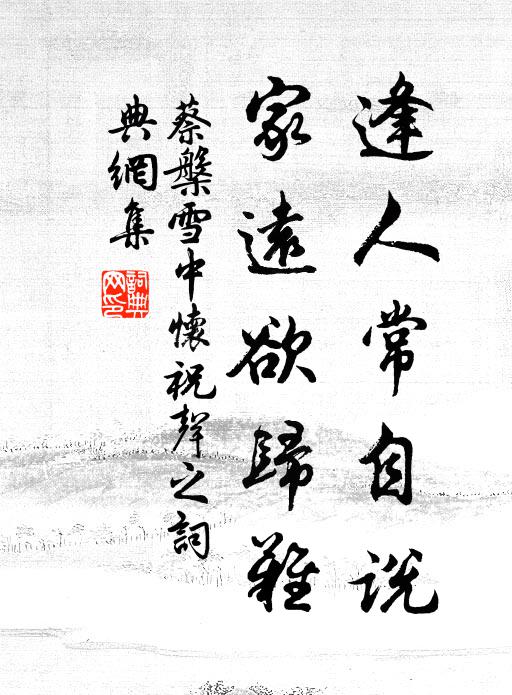 逢人常自說
家遠欲歸難
蔡槃雪中懷祝聲之詞
典網集
詞典網印